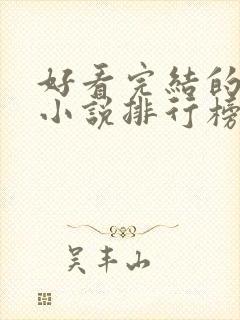 好看完結的
小說排行榜
吴丰山